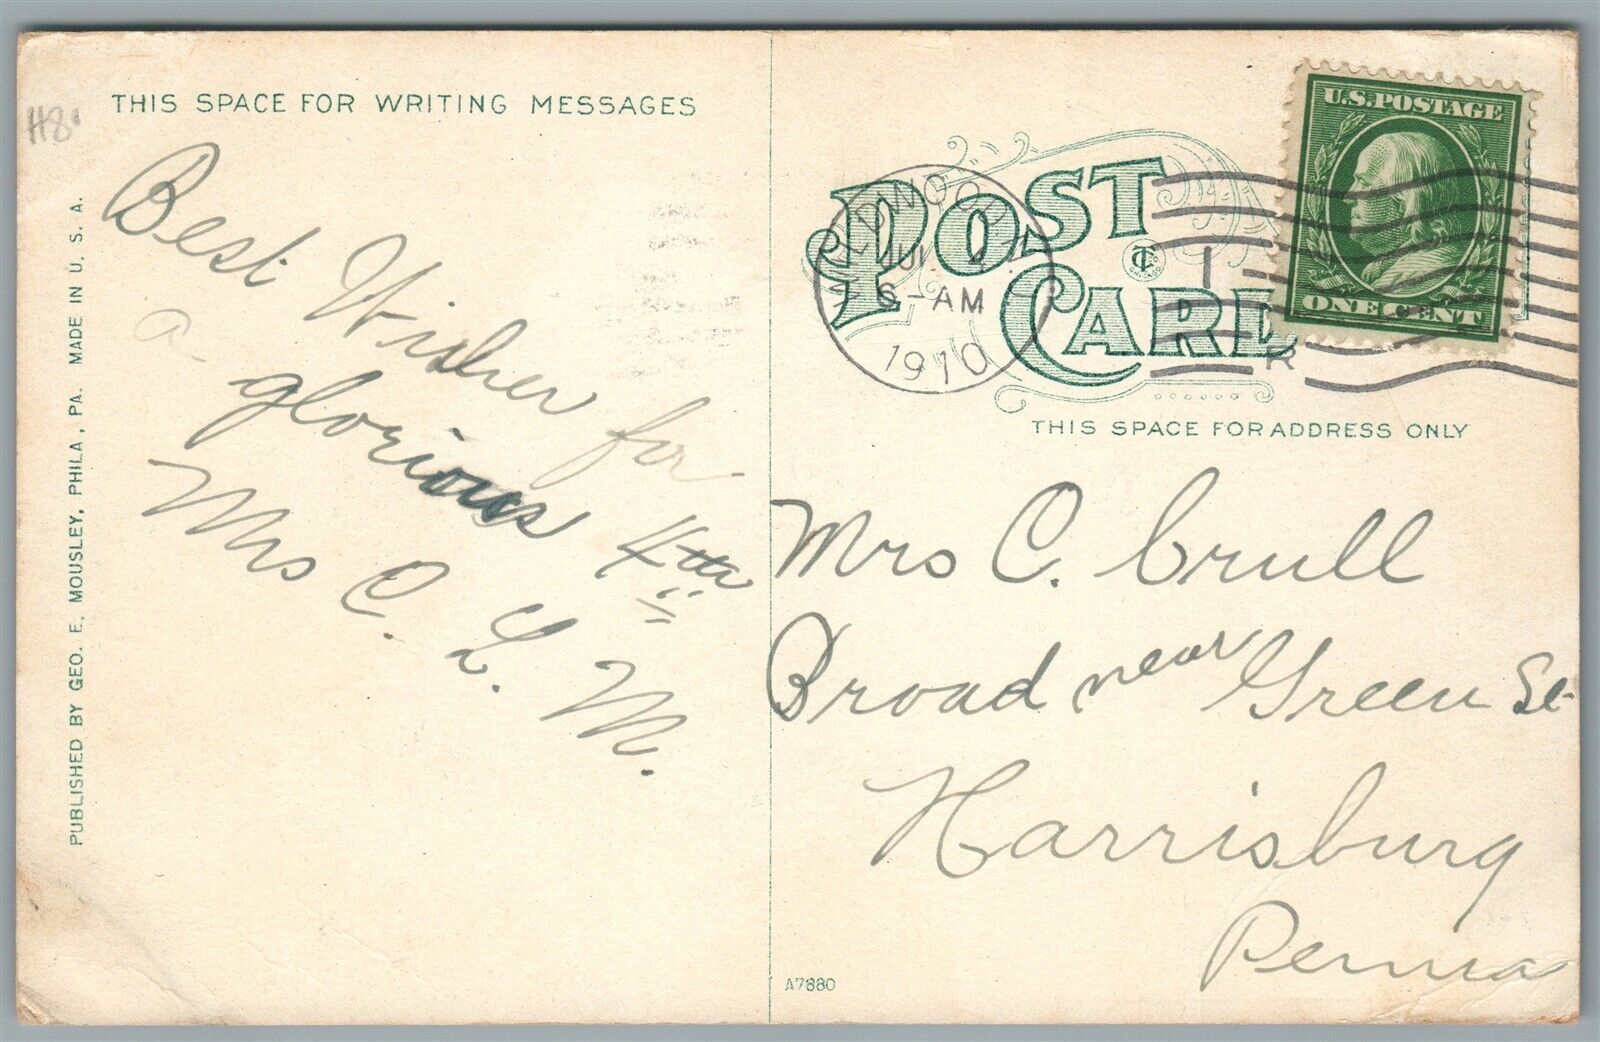 THIS SPACE FOR WRITING MESSAGES
H8
Best Wishes for
a glorious 4th
Mrs C. L. M.
PUBLISHED BY GEO. E. MOUSLEY, PHILA., PA. MADE IN U. S. A.
POST CARD
U.S. POSTAGE
ONE CENT
WILDWOOD
6-AM
1910
1
R
THIS SPACE FOR ADDRESS ONLY
Mrs C. Crull
Broad near Green St
Harrisburg
Penna
A7880